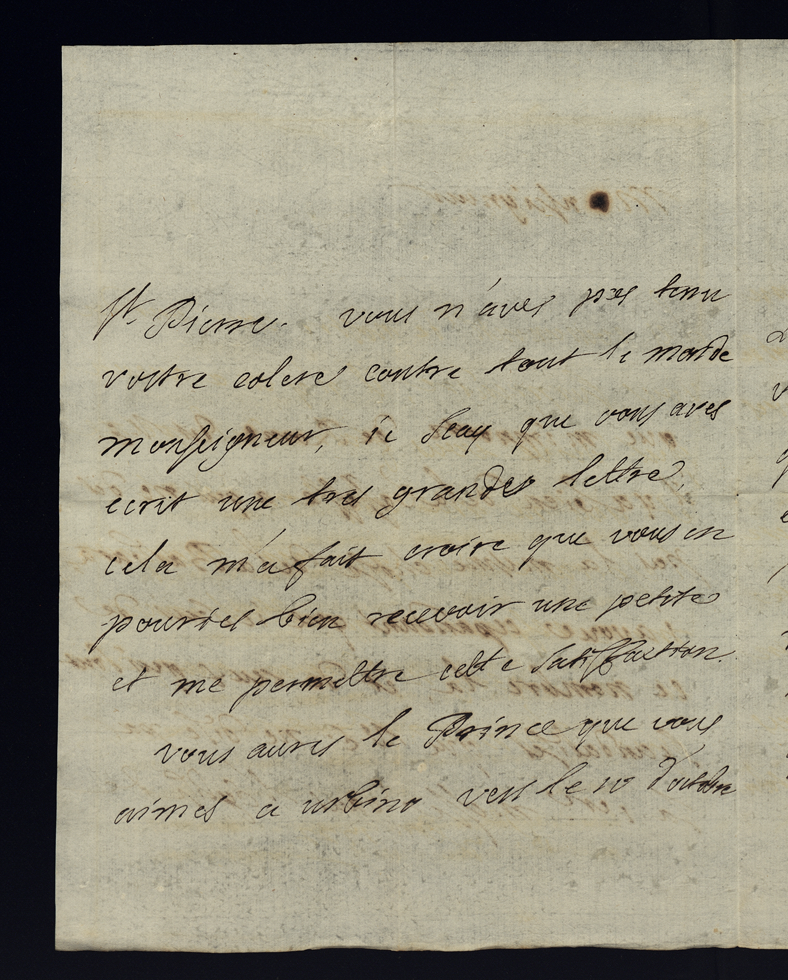 St. Pierre. vous n'aves pas tenu
vostre colere contre tout le monde
monseigneur, ie scay que vous aves
ecrit une tres grande lettre,
cela m'a fait croire que vous en
pouriés bien recevoir une petite
et me permettre cette satisfaction.
vous aures le Prince que vous
aimes a urbino vers le 10 d'octobre